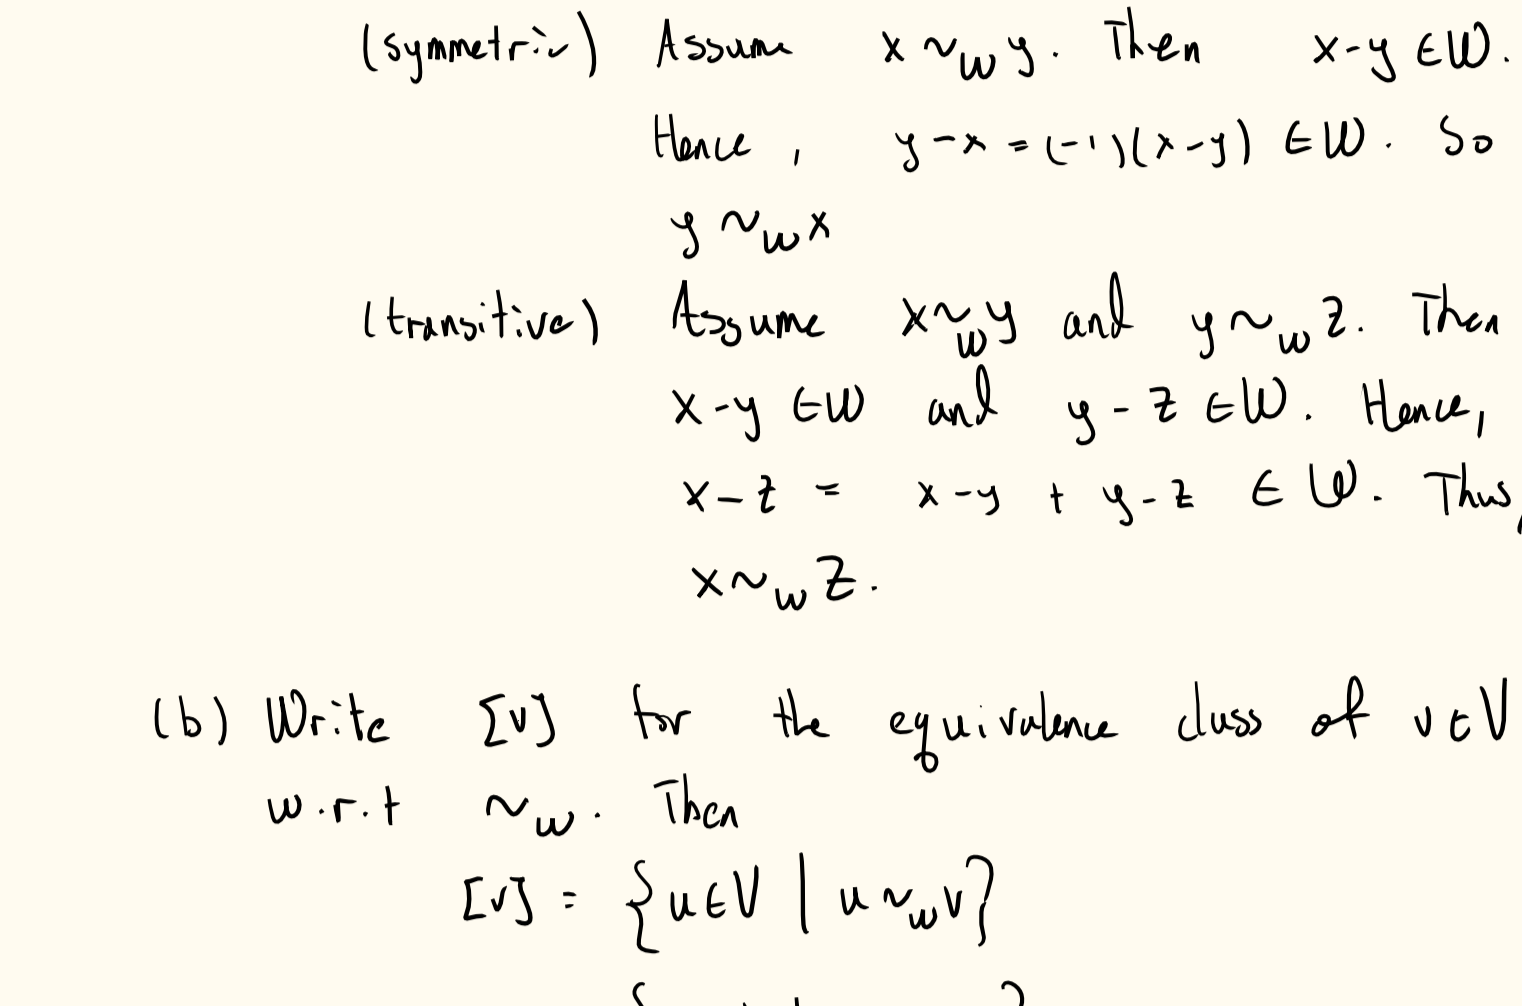 (symmetric) Assume x ~_W y. Then x-y ∈ W.
Hence, y-x = (-1)(x-y) ∈ W. So
y ~_W x
(transitive) Assume x ~_W y and y ~_W z. Then
x-y ∈ W and y-z ∈ W. Hence,
x-z = x-y + y-z ∈ W. Thus,
x ~_W z.
(b) Write [v] for the equivalence class of v ∈ V
w.r.t ~_W. Then
[v] = {u ∈ V | u ~_W v}